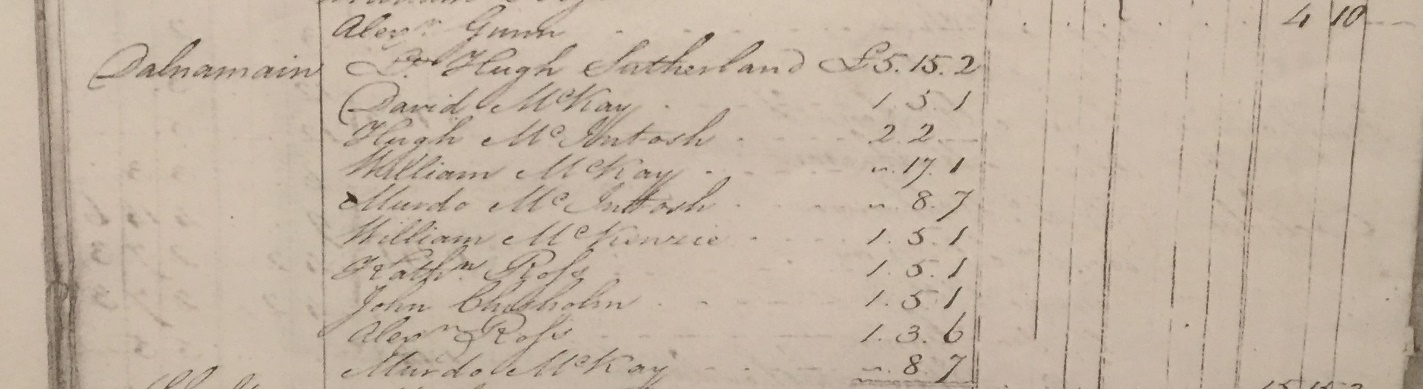 Alexr Gunn 4 10
Dalnamain Lt Hugh Sutherland £5.15.2
David McKay 1 5 1
Hugh McIntosh 2 2 —
William McKay " 17. 1
Murdo McIntosh " 8. 7
William McKenzie 1. 5. 1
Kathn Ross 1. 5. 1
John Chisholm 1. 5 1
Alexr Ross 1. 3. 6
Murdo McKay " 8. 7